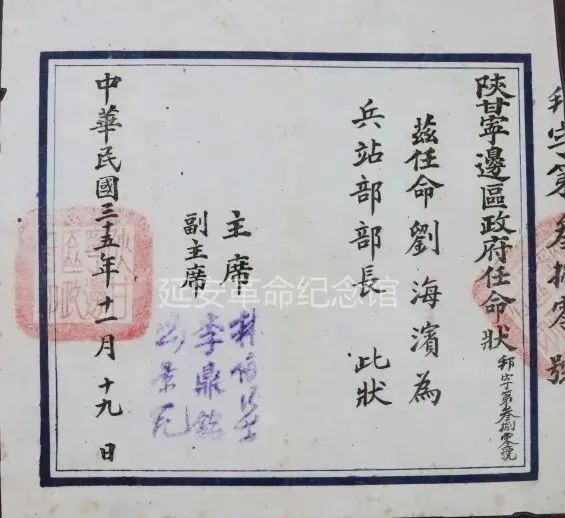 字第叁捌零號
陝甘寧邊區政府任命狀
字第叁捌零號
茲任命劉海濱為
兵站部部長 此狀
主席 林伯渠
副主席 李鼎銘
刘景范
中華民國三十五年十一月十九日
延安革命纪念馆